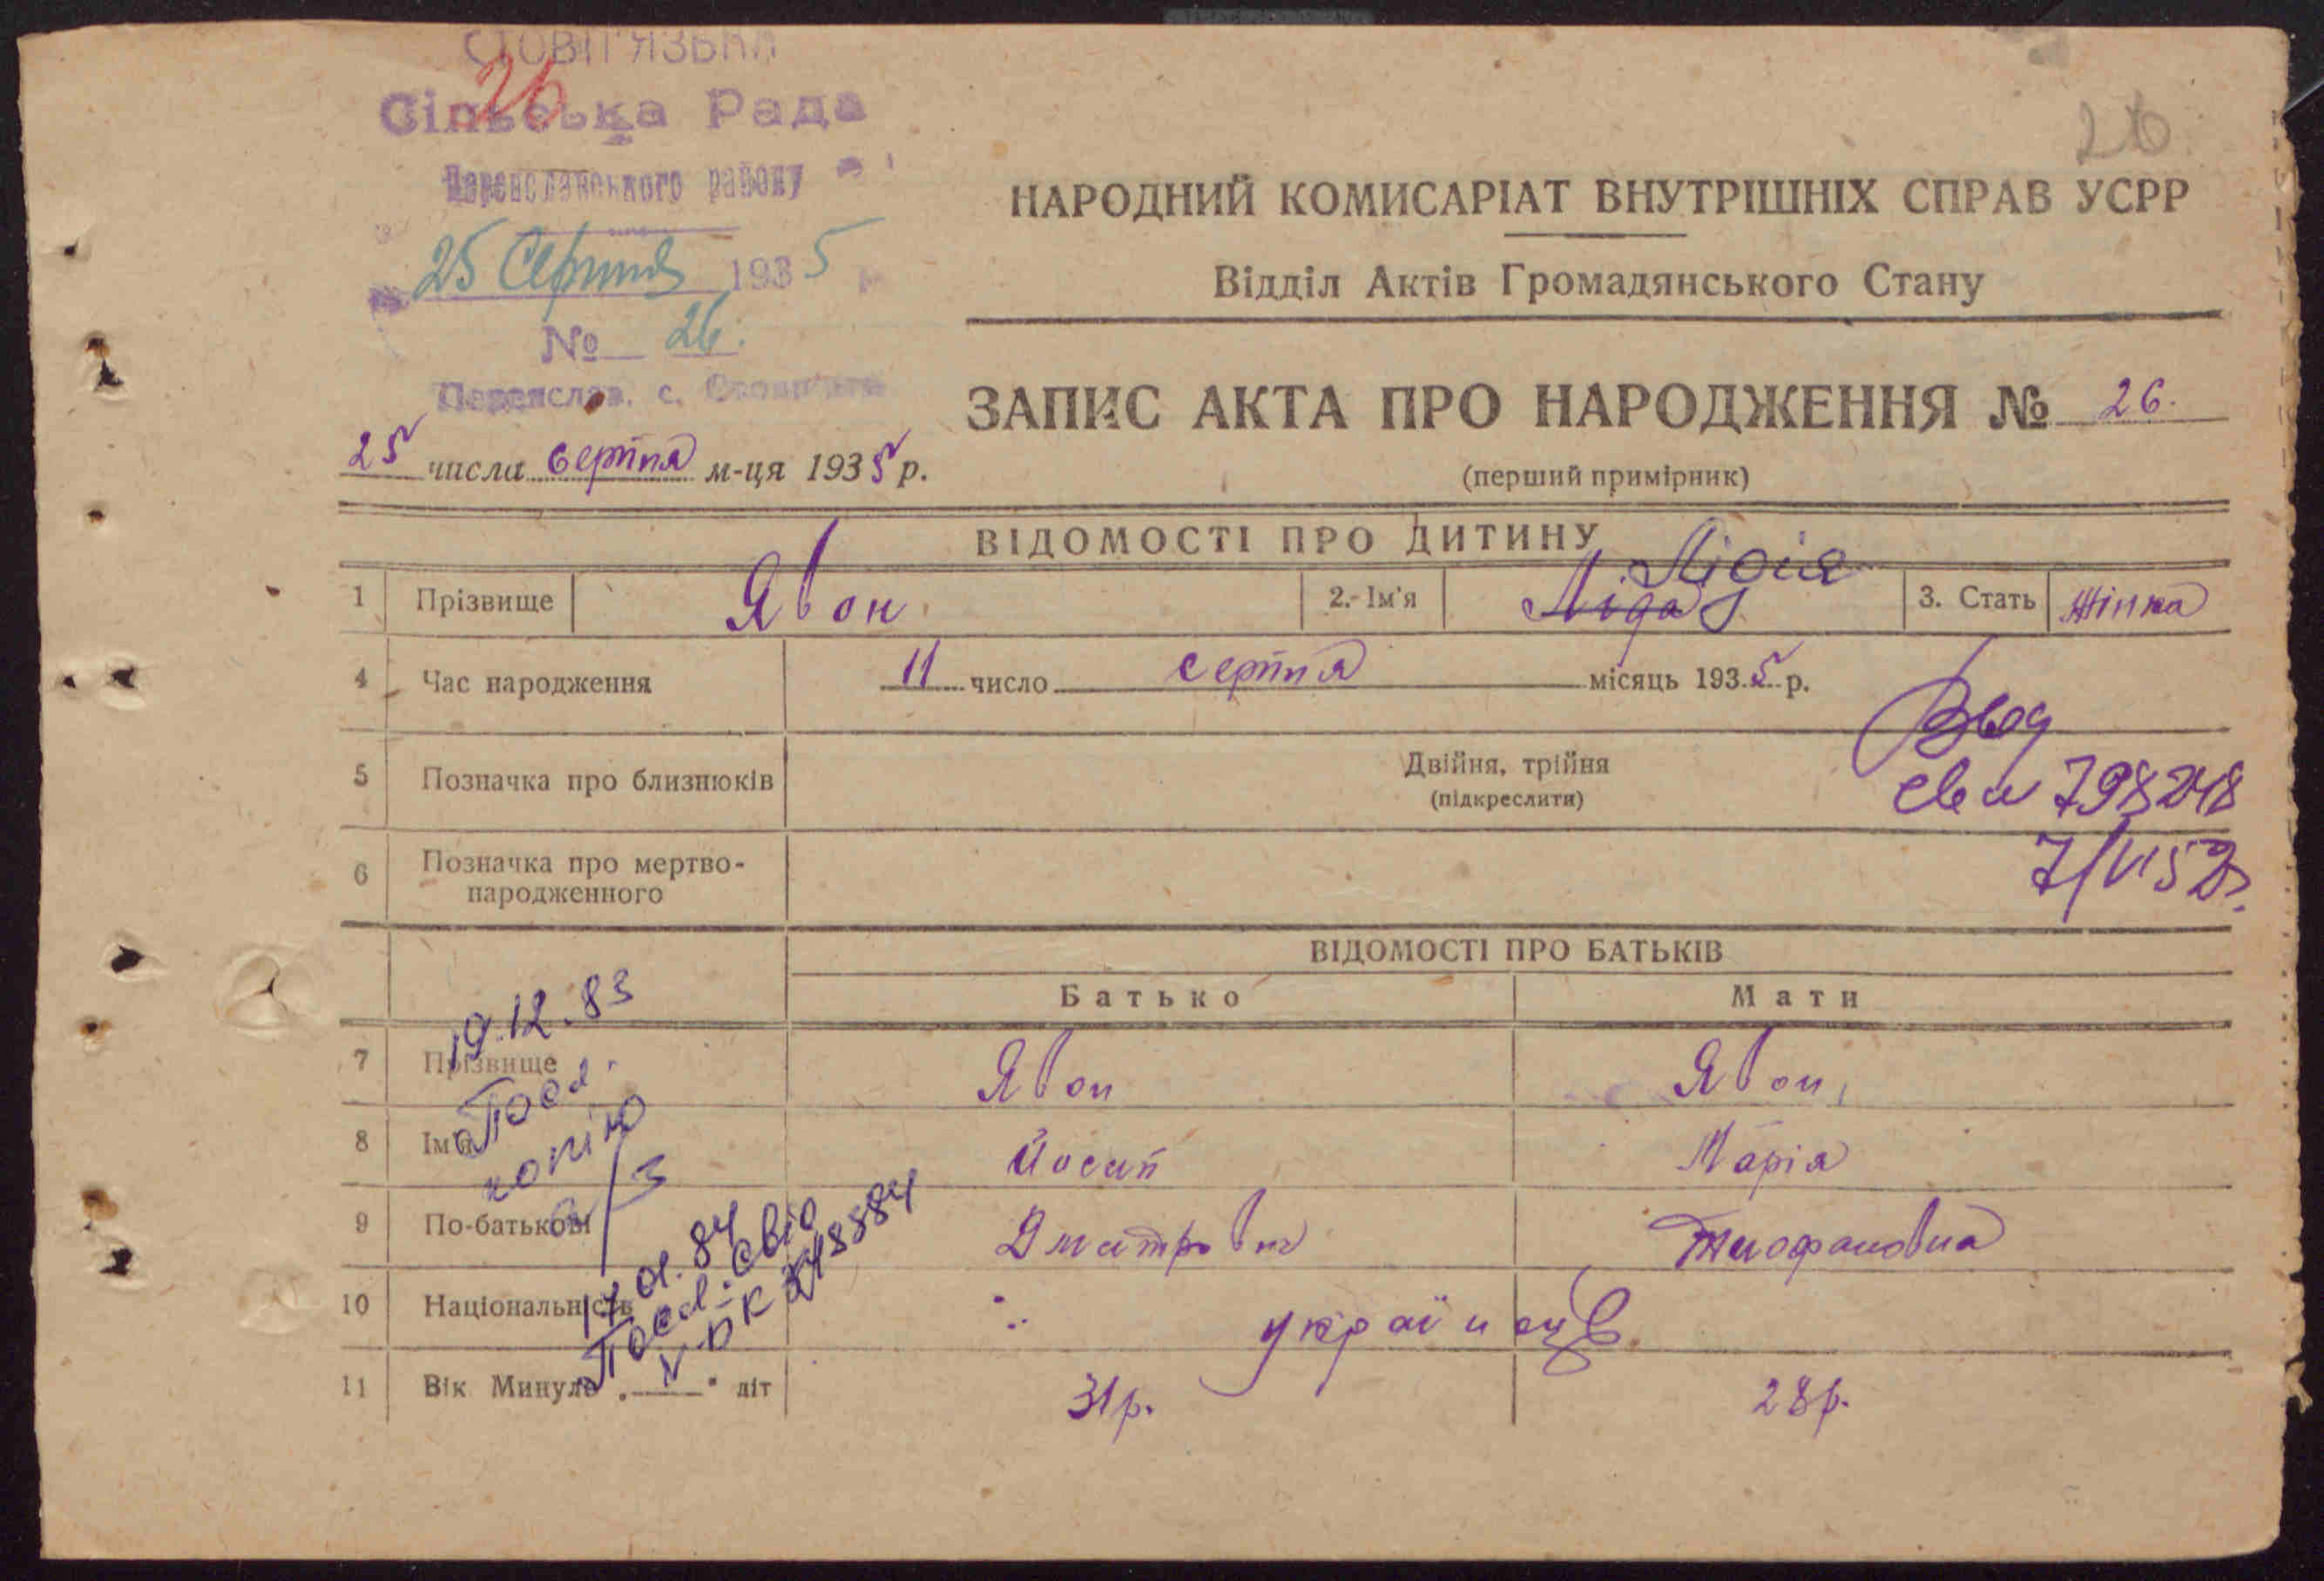 СТОВП'ЯЗЬКА
26
Сільська Рада
Переяславського району
25 Серпня 1935
№ 26.
Переяслав. с.
26
НАРОДНИЙ КОМИСАРІАТ ВНУТРІШНІХ СПРАВ УСРР
Відділ Актів Громадянського Стану
ЗАПИС АКТА ПРО НАРОДЖЕННЯ № 26.
(перший примірник)
25 числа серпня м-ця 1935 р.
ВІДОМОСТІ ПРО ДИТИНУ
Лідія
1 Прізвище Явон 2. Ім'я Ліда 3. Стать жінка
4 Час народження 11 число серпня місяць 1935 р.
5 Позначка про близнюків Двійня, трійня
(підкреслити)
св 798248
7/VI 52г.
6 Позначка про мертво-
народженного
ВІДОМОСТІ ПРО БАТЬКІВ
Батько Мати
19.12.83
7 Прізвище Явон Явон
копію
8 Ім'я Йосип Марія
9 По-батькові Дмитрович Тимофановна
17.01.84
10 Національність українці
11 Вік Минуло „ " літ 31р. 28р.